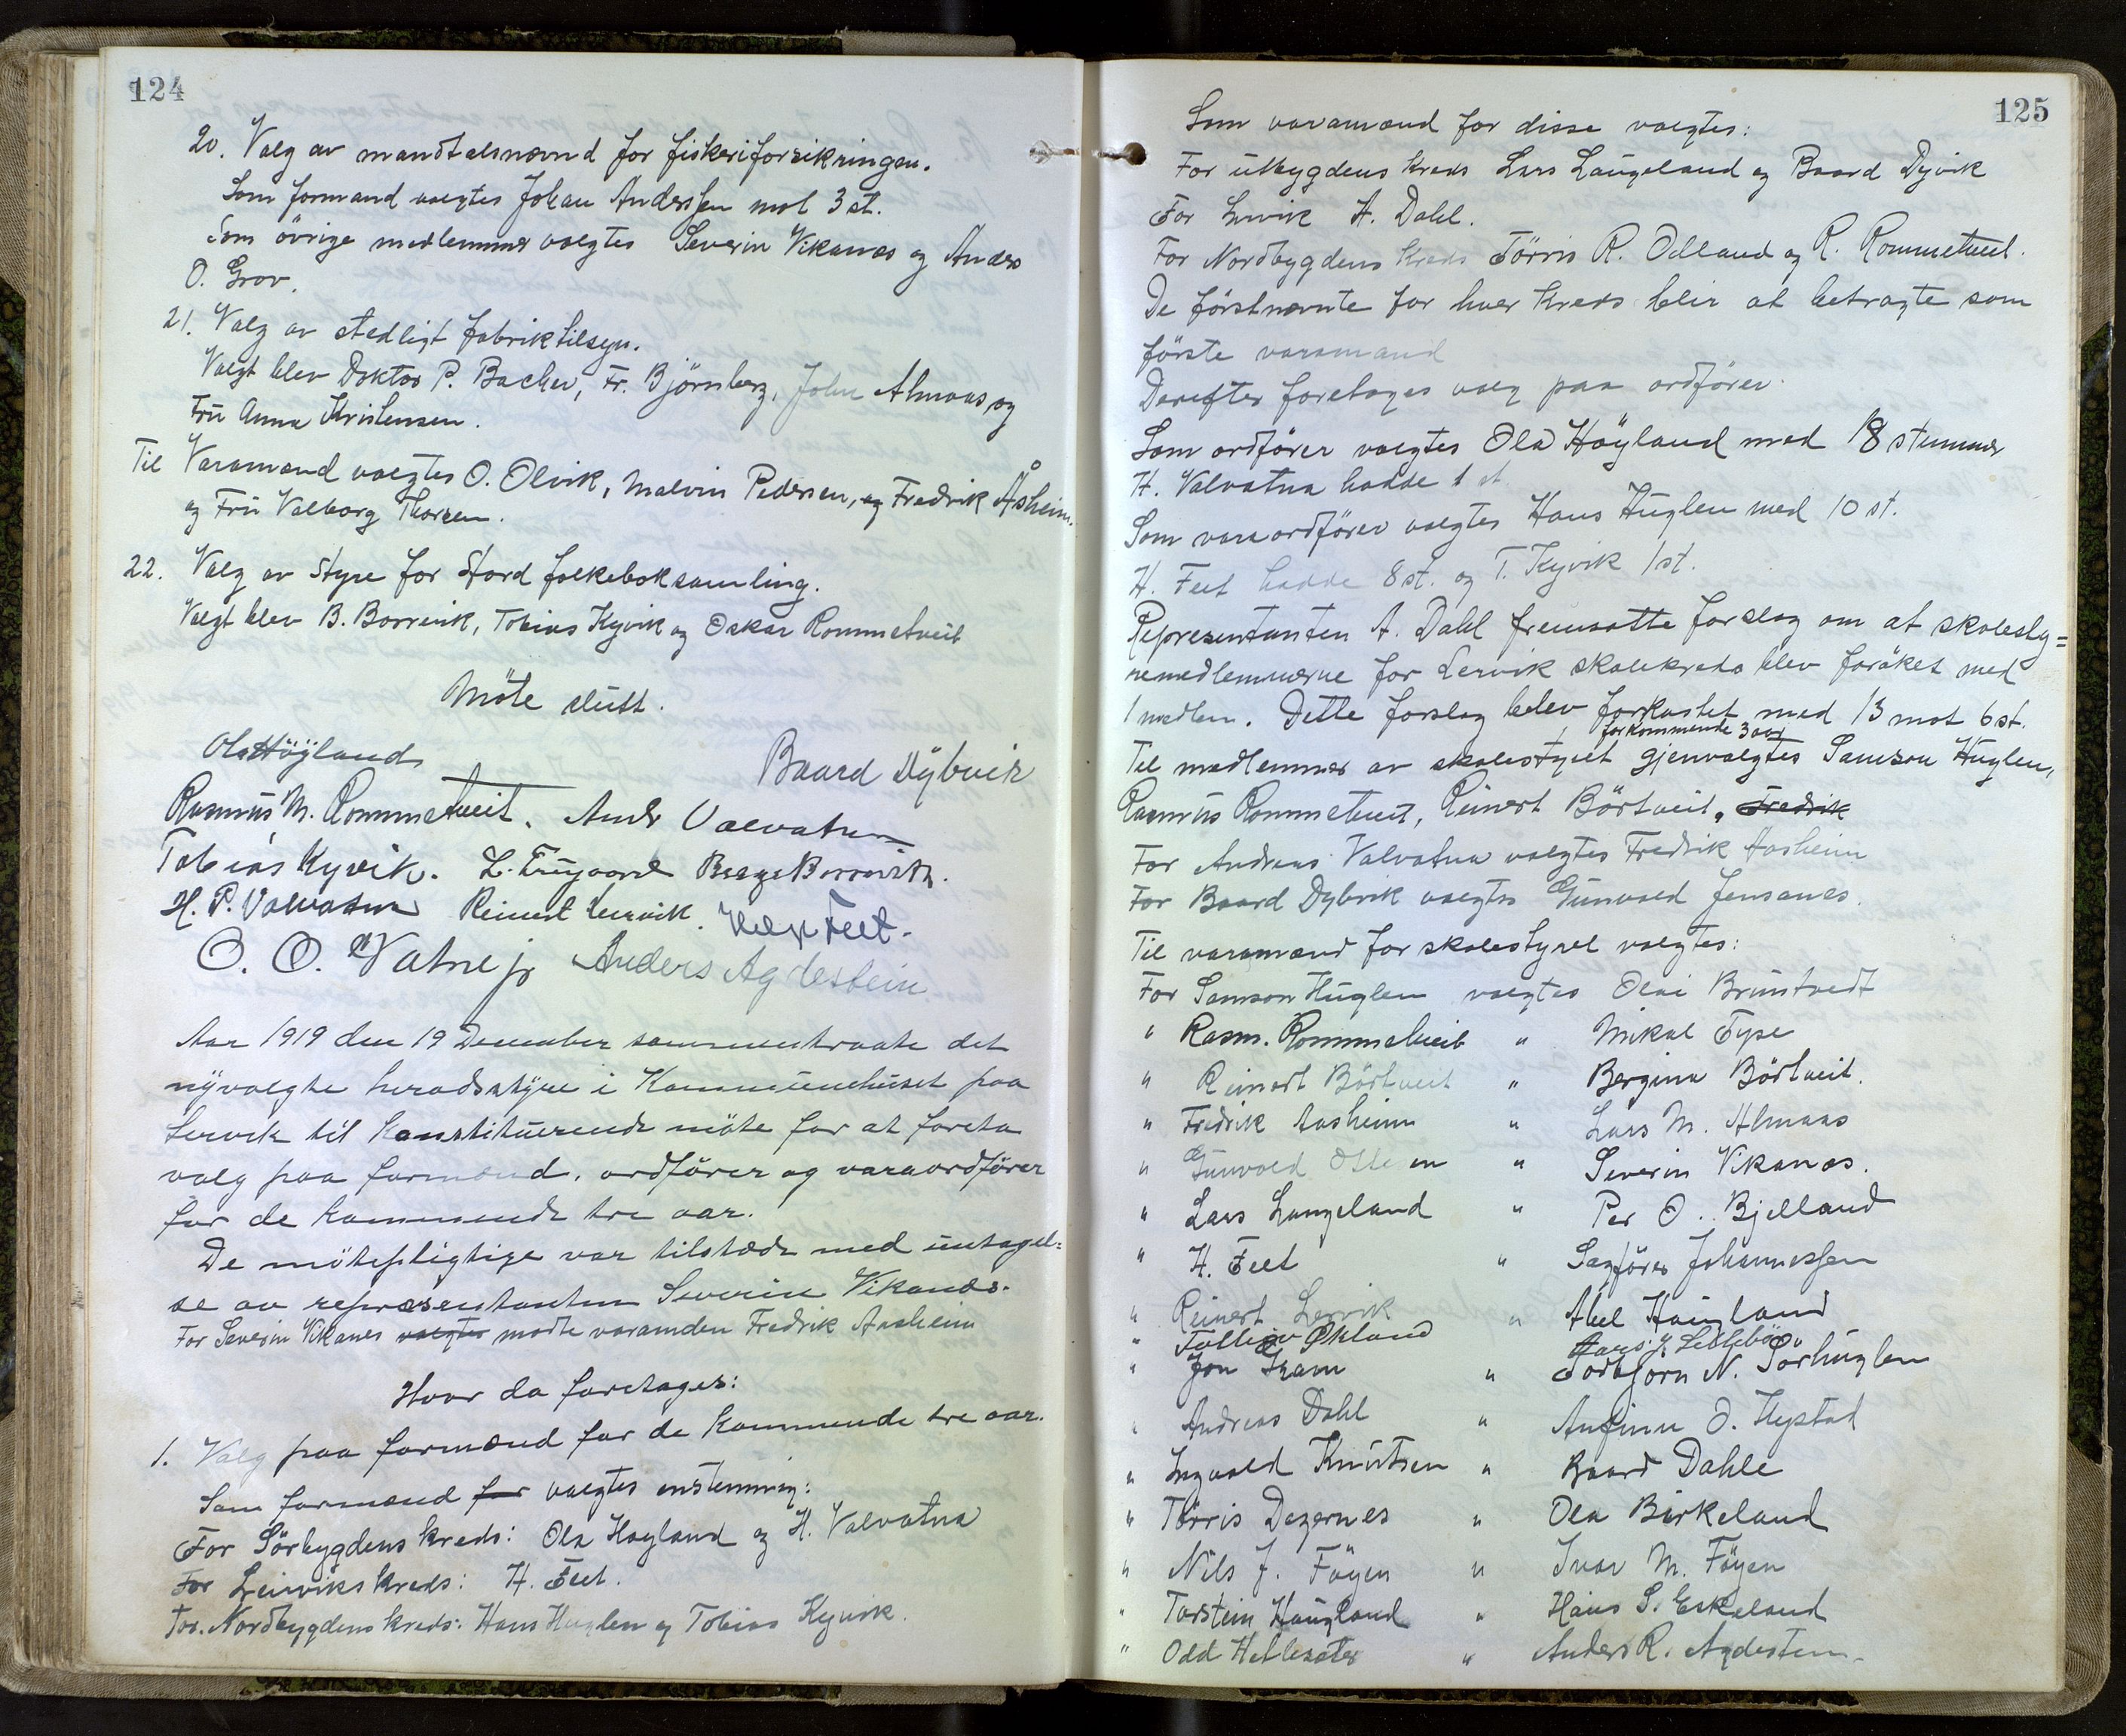 124
20. Valg av mandtalsnævnd for fiskeriforsikringen.
Som formand valgtes Johan Anderssen mot 3 st.
Som övrige medlemmer valgtes Severin Vikanæs og Anders
O. Grov.
21. Valg av stedligt fabriktilsyn.
Valgt blev Doktor P. Bacher, Fr. Björnberg, John Almaas og
Fru Anna Kristensen.
Til Varamænd valgtes O. Olvik, Malvin Pedersen, og Fredrik Åsheim.
og Fru Valborg Thorsen.
22. Valg av Styre for Stord folkeboksamling.
Valgt blev B. Borrevik, Tobias Kyvik og Oskar Rommetveit
Möte slutt.
Ola Höyland
Baard Dÿbvik
Rasmus M. Rommetveit. Andr Valvatna
Tobias Kyvik. L. Trygaard Borrevik.
H. P. Valvatna Reinert Lervik. Helge Feet.
O. O. Vatne jr Anders Agdestein
Aar 1919 den 19 December sammentraate det
nÿvalgte heradsstÿre i Kommunehuset paa
Lervik til konstituerende möte for at foreta
valg paa formænd, ordförer og varaordförer
for de kommende tre aar.
De mötepligtige var tilstæde med untagel=
se av repræsentanten Severin Vikanæs.
For Severin Vikanes valgtes mødte varamden Fredrik Aasheim
Hvor da foretages:
1. Valg paa formænd for de kommende tre aar.
Som formænd for valgtes enstemmig:
For Sörbygdens kreds: Ola Høyland og H. Valvatna
For Leirviks kreds: H. Feet.
For Nordbygdens kreds: Hans Huglen og Tobias Kyvik.
125
Som varamænd for disse valgtes:
For utbygdens kreds Lars Langeland og Baard Dyvik
For Lervik A. Dahl.
For Nordbygdens kreds Törris R. Odland og R. Rommetveit.
De förstnævnte for hver kreds blir at betragte som
förste varamand
Derefter foretages valg paa ordförer.
Som ordförer valgtes Ola Höyland med 18 stemmer
H. Valvatna hadde 1 st
Som varaordförer valgtes Hans Huglen med 10 st.
H. Feet hadde 8 st. og T. Kyvik 1 st.
Repræsentanten A. Dahl fremsatte forslag om at skolesty=
remedlemmerne for Lervik skolekreds blev forøket med
1 medlem. Dette forslag blev forkastet med 13 mot 6 st.
for kommende 3 aar
Til medlemmer av skolestyret gjenvalgtes Samson Huglen,
Rasmus Rommetveit, Reinert Börtveit, Fredrik
For Andreas Valvatna valgtes Fredrik Aasheim
For Baard Dybvik valgtes Gunvald Jensanes.
Til varamænd for skolestyret valgtes:
For Samson Huglen valgtes Olai Bruntvedt
" Rasm. Rommetveit " Mikal Tyse
" Reinert Börtveit " Bergina Börtveit.
" Fredrik Aasheim " Lars M. Almaas
" Gunvald Olsen " Severin Vikanæs.
" Lars Langeland " Per O. Bjelland
" H. Feet " Sagförer Johannessen
" Reinert Lervik " Abel Haugland
" Økland Lars J. Litlebö
" Jon Tram " Torbjörn N. Sörhuglen
" Andreas Dahl " Anfinn O. Hystad
" Ingvald Knutsen " Baard Dahle
" Törris Dagernes " Ola Birkeland
" Nils J. Föyen " Ivar M. Föyen
" Torstein Haugland " Hans S. Eskeland
" Odd Hetlesæter " Anders R. Agdestein.